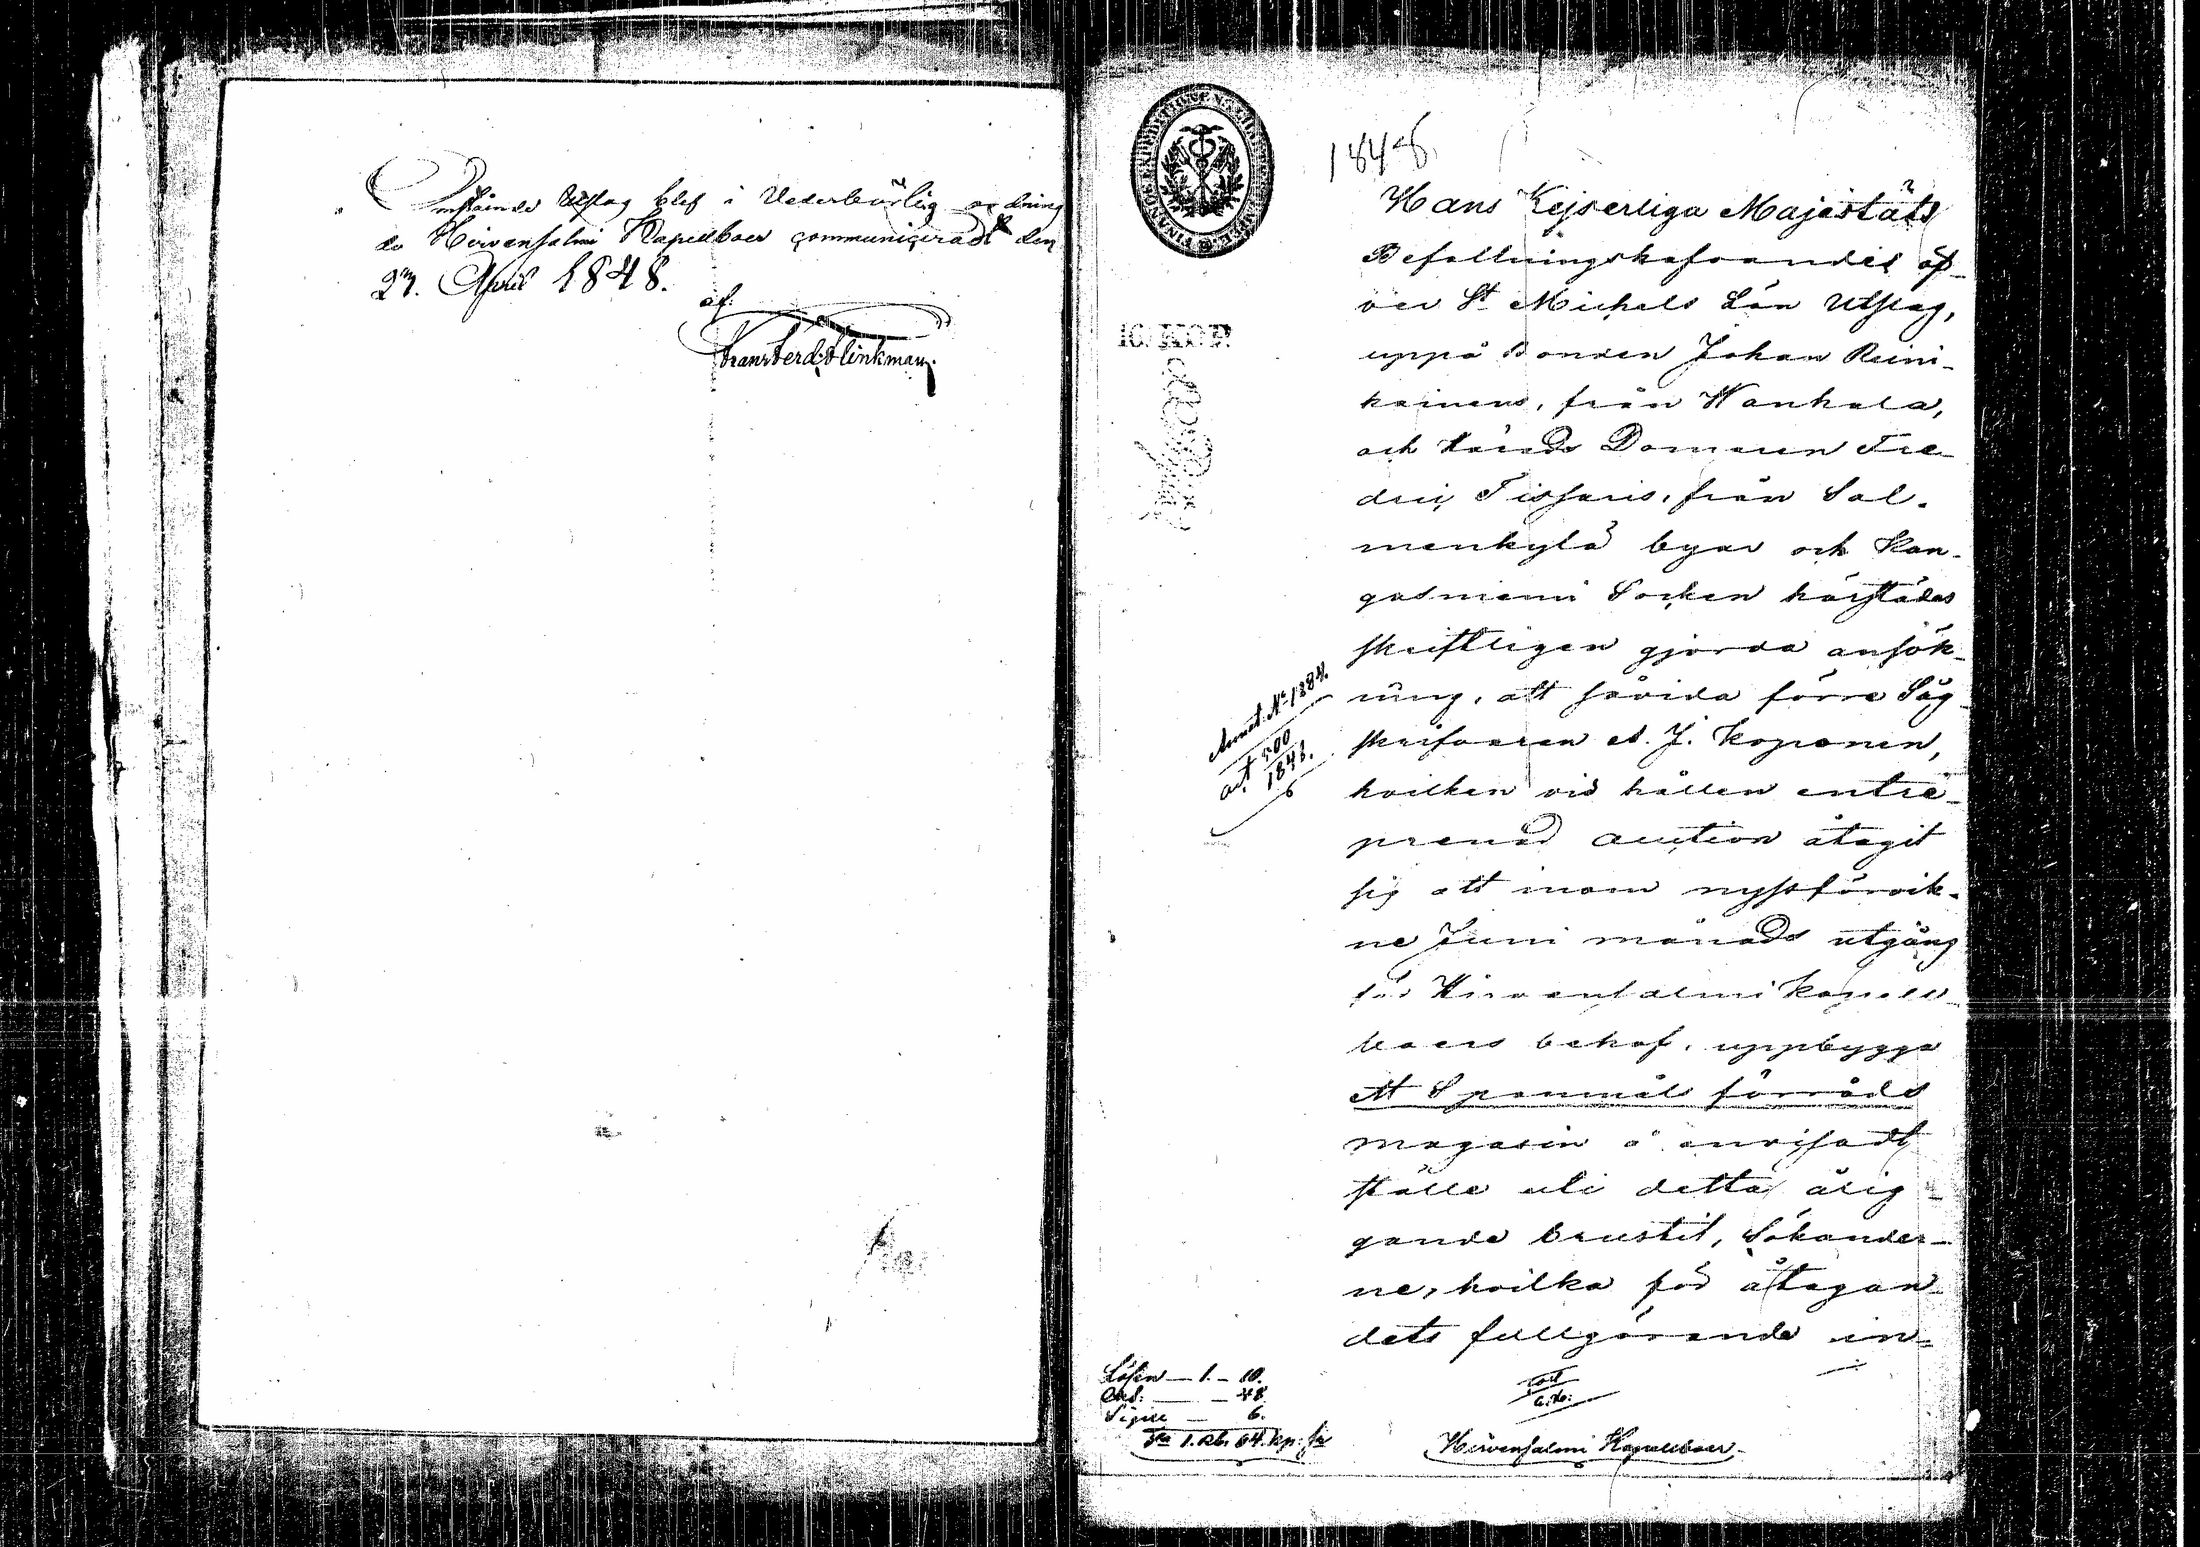 Omstående Utslag blef i Vederbörlig ordning
de Hirvensalmi Kapellboer communiceradt den
27. April 1848.
af:
Frans Ferd: Flinkman.
1848
10. KOP.
Hans Kejserliga Majestäts
Befallningshafvandes öf-
ver St Michels Län Utslag,
uppå Bonden Johan Reini-
kainens, från Wanhala,
och Härads Domaren Fre-
dric Tissaris, från Sal-
menkylä byar och Kan-
gasniemi Socken härstädes
skriftligen gjorda ansök-
ning, att såvida förre Såg
skrifvaren A. J. Koponen,
hvilken vid hållen entre-
prenad auction åtagit
sig att inom nysst förvik-
ne Juni månads utgång
för Hirvensalmi Kapell-
boers behof, uppbygga
ett Spanmåls förråds
magasin å anvisadt
ställe uti detta ålig-
gande brustit, Sökander-
ne, hvilka för åtagan-
dets fullgörande in-
Annot. No 1884.
act 500
1848.
Lösen — 1. — 10.
Ord: — — 48
Sigill — 6.
Sa 1. Rb. 64. kp. Sr
Hirvensalmi Kapellboer